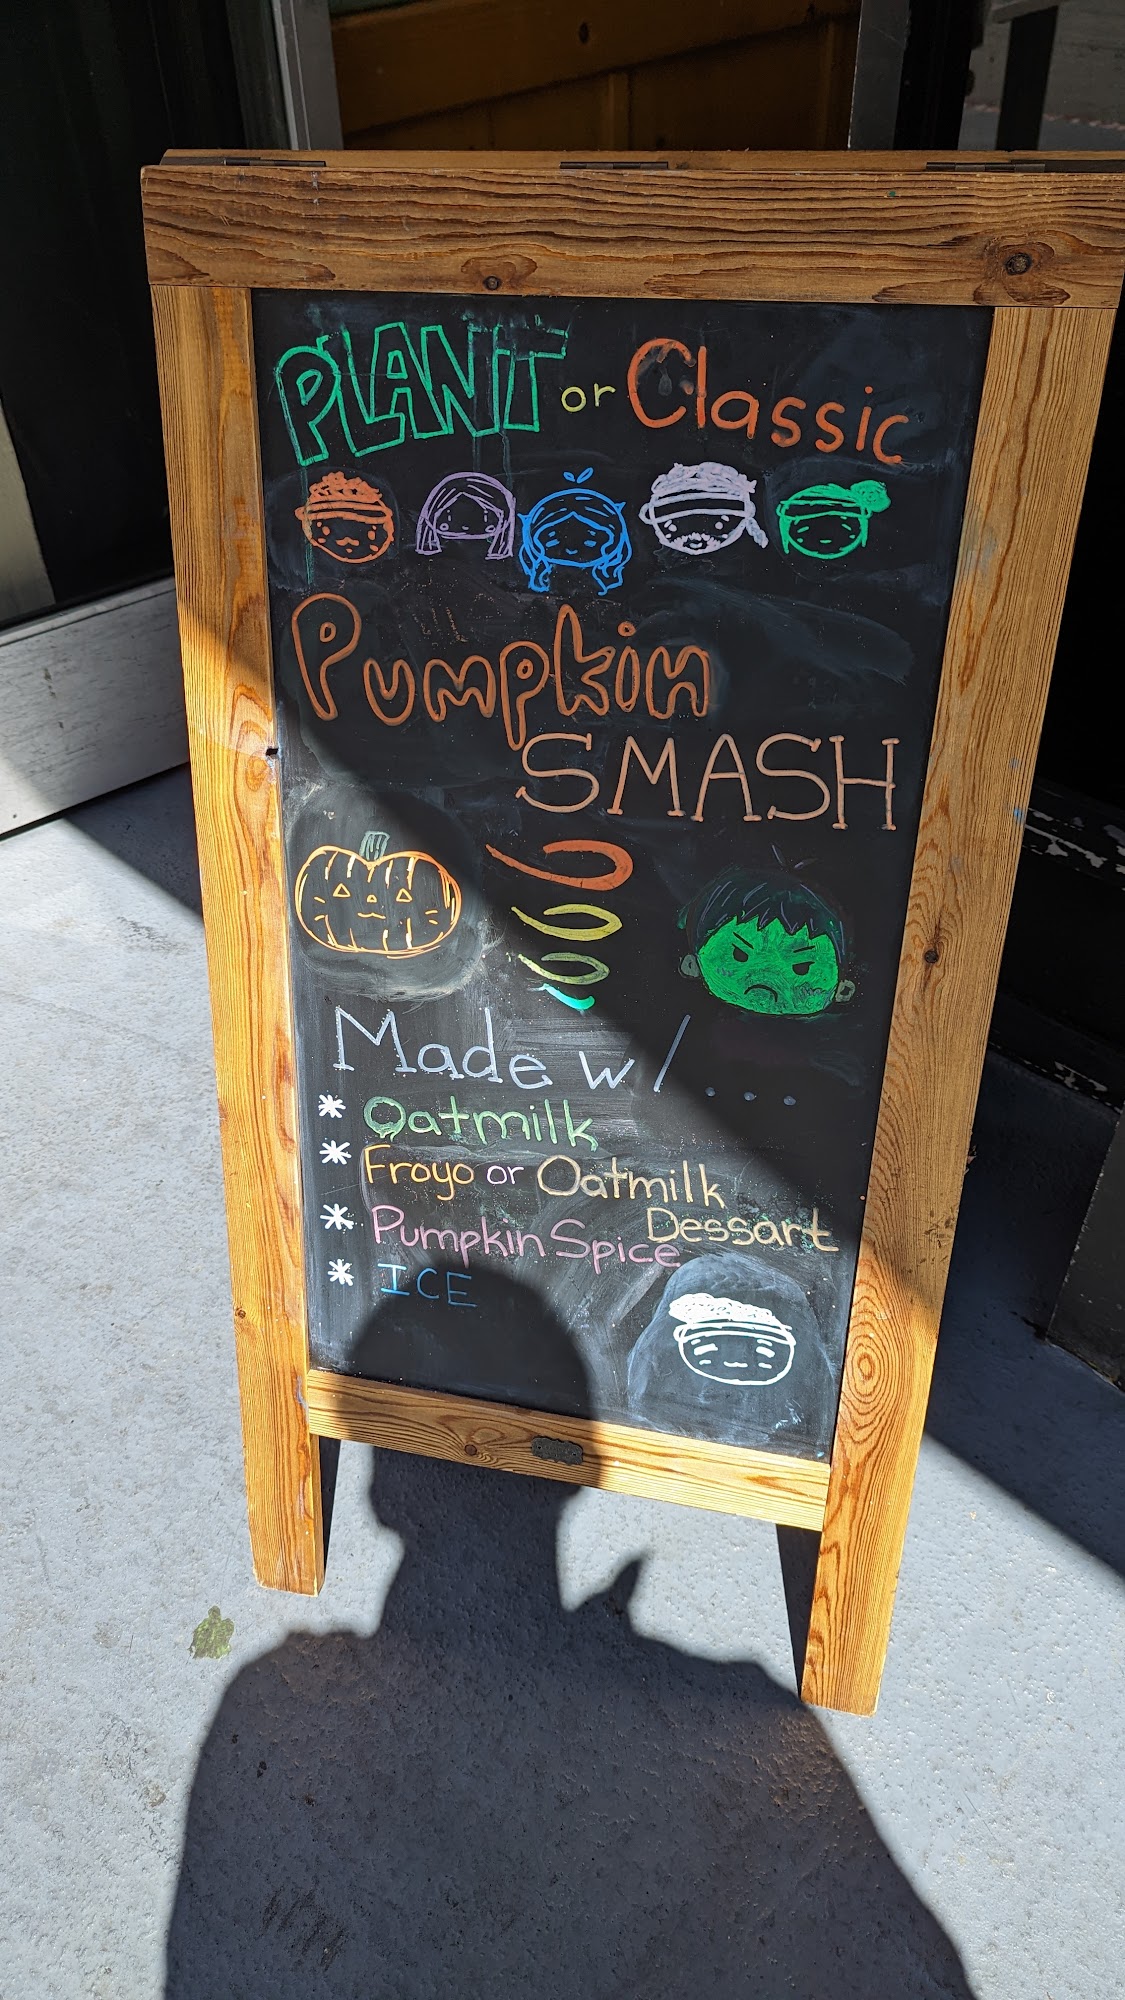 PLANT or Classic
Pumpkin
SMASH
Made w/...
* Oatmilk
* Froyo or Oatmilk
Dessart
* Pumpkin Spice
* ICE